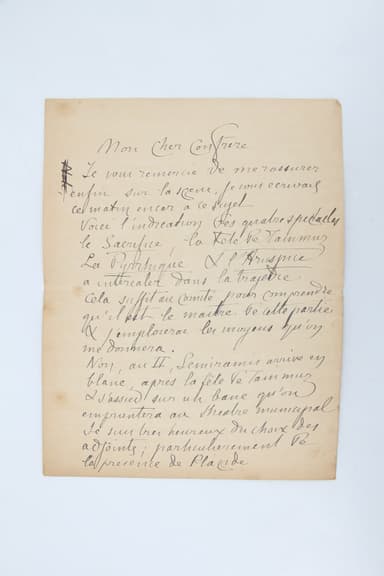 Mon cher Confrere
Je vous remercie de me rassurer
enfin sur la scene, je vous ecrivais
ce matin encor a ce sujet.
Voici l'indication des quatre spectacles
le Sacrifice, la Fête de Tammuz
La Pyrrhique & l'Aruspice
a intercaler dans la tragedie.
Cela suffit au Comite pour comprendre
qu'il est le maitre de cette partie
& j'emploierai les moyens qu'on
me donnera.
Non, au II, Semiramis arrive en
blanc, apres la fête de Tammuz
& s'assied sur un banc qu'on
empruntera au theatre municipal
Je suis tres heureux du choix des
adjoints, particulierement de
la presence de Placide